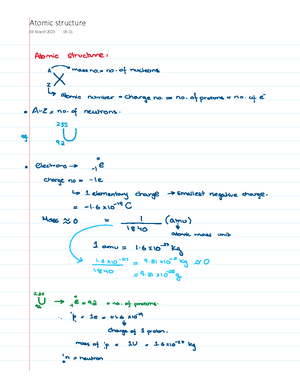 Atomic structure
02 March 2023 08:21
Atomic structure:
A → mass no. = no. of nucleons
X
Z → atomic number = charge no. = no. of protons = no. of e⁻
• A-Z = no. of neutrons.
eg 235
U
92
• electrons → ⁰₋₁e
charge no = -1e
↳ 1 elementary charge → smallest negative charge.
= -1.6 × 10⁻¹⁹ C
Mass ≈ 0 = 1/1840 (amu)
↳ atomic mass unit
1 amu = 1.6 × 10⁻²⁷ kg
1.6 × 10⁻²⁷ / 1840 = 9.81 × 10⁻³¹ kg ≈ 0
= 9.81 × 10⁻²⁸ g
235
U → e = 92 = no. of protons.
92
p = 1e = +1.6 × 10⁻¹⁹
charge of 1 proton.
mass of p = 1U = 1.6 × 10⁻²⁷ kg
n = neutron